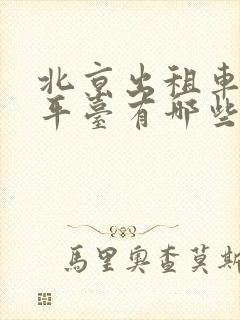 北京出租車
平臺有哪些
馬里奧查莫斯